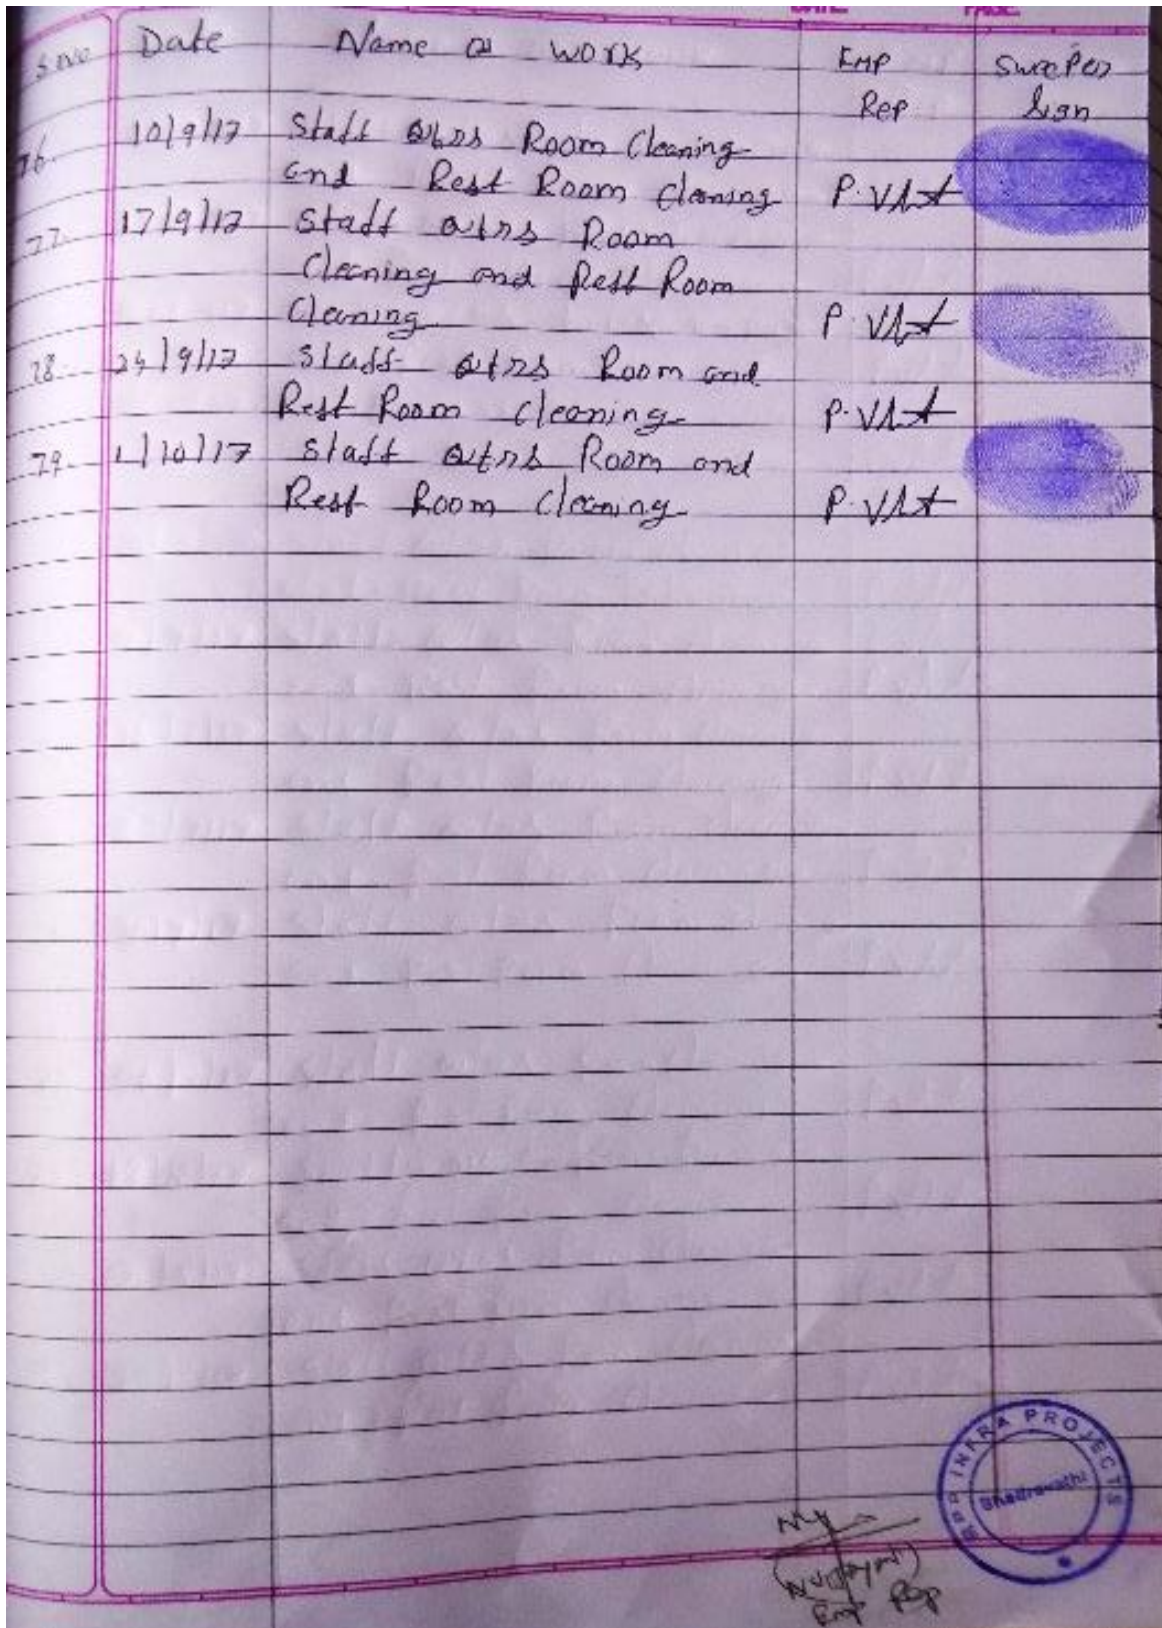 DATE: PAGE:
S.No Date Name of work Emp Sweeper
Rep Sign
76 10/9/17 Staff Qtrs Room Cleaning
and Rest Room Cleaning
77 17/9/17 Staff Qtrs Room
Cleaning and Rest Room
Cleaning
78 24/9/17 Staff Qtrs Room and
Rest Room Cleaning
79 1/10/17 Staff Qtrs Room and
Rest Room Cleaning
INFRA PROJECTS
Bhadravathi
Emp Rep